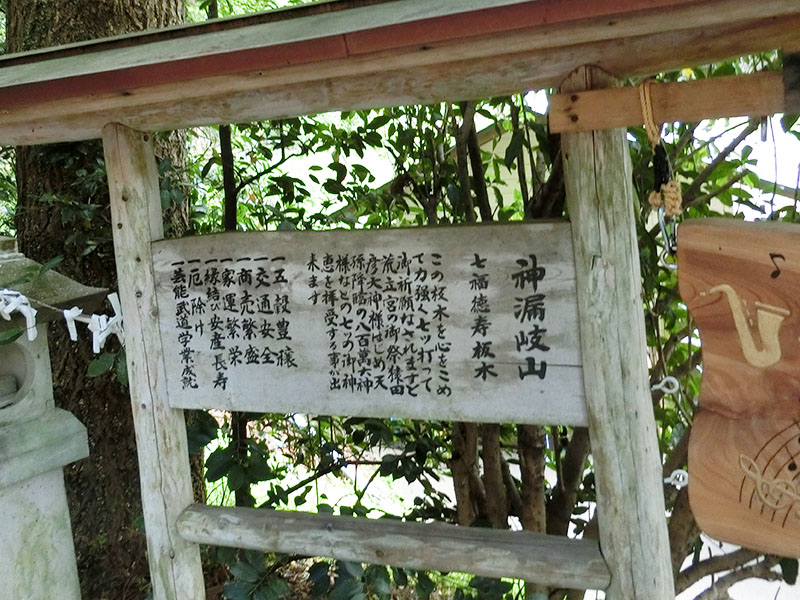 神漏岐山
七福徳寿板木
この板木を心をこめ
て力強く七ツ打って
御祈願なされますと
荒立宮の御祭猿田
彦大神様はじめ天
孫降臨の八百萬の神
様などの七ツの御神
恵を拝受する事が出
来ます
一 五穀豊穣
一 交通安全
一 商売繁盛
一 家運繁栄
一 縁結び安産長寿
一 厄除け
一 芸能武道学業成就